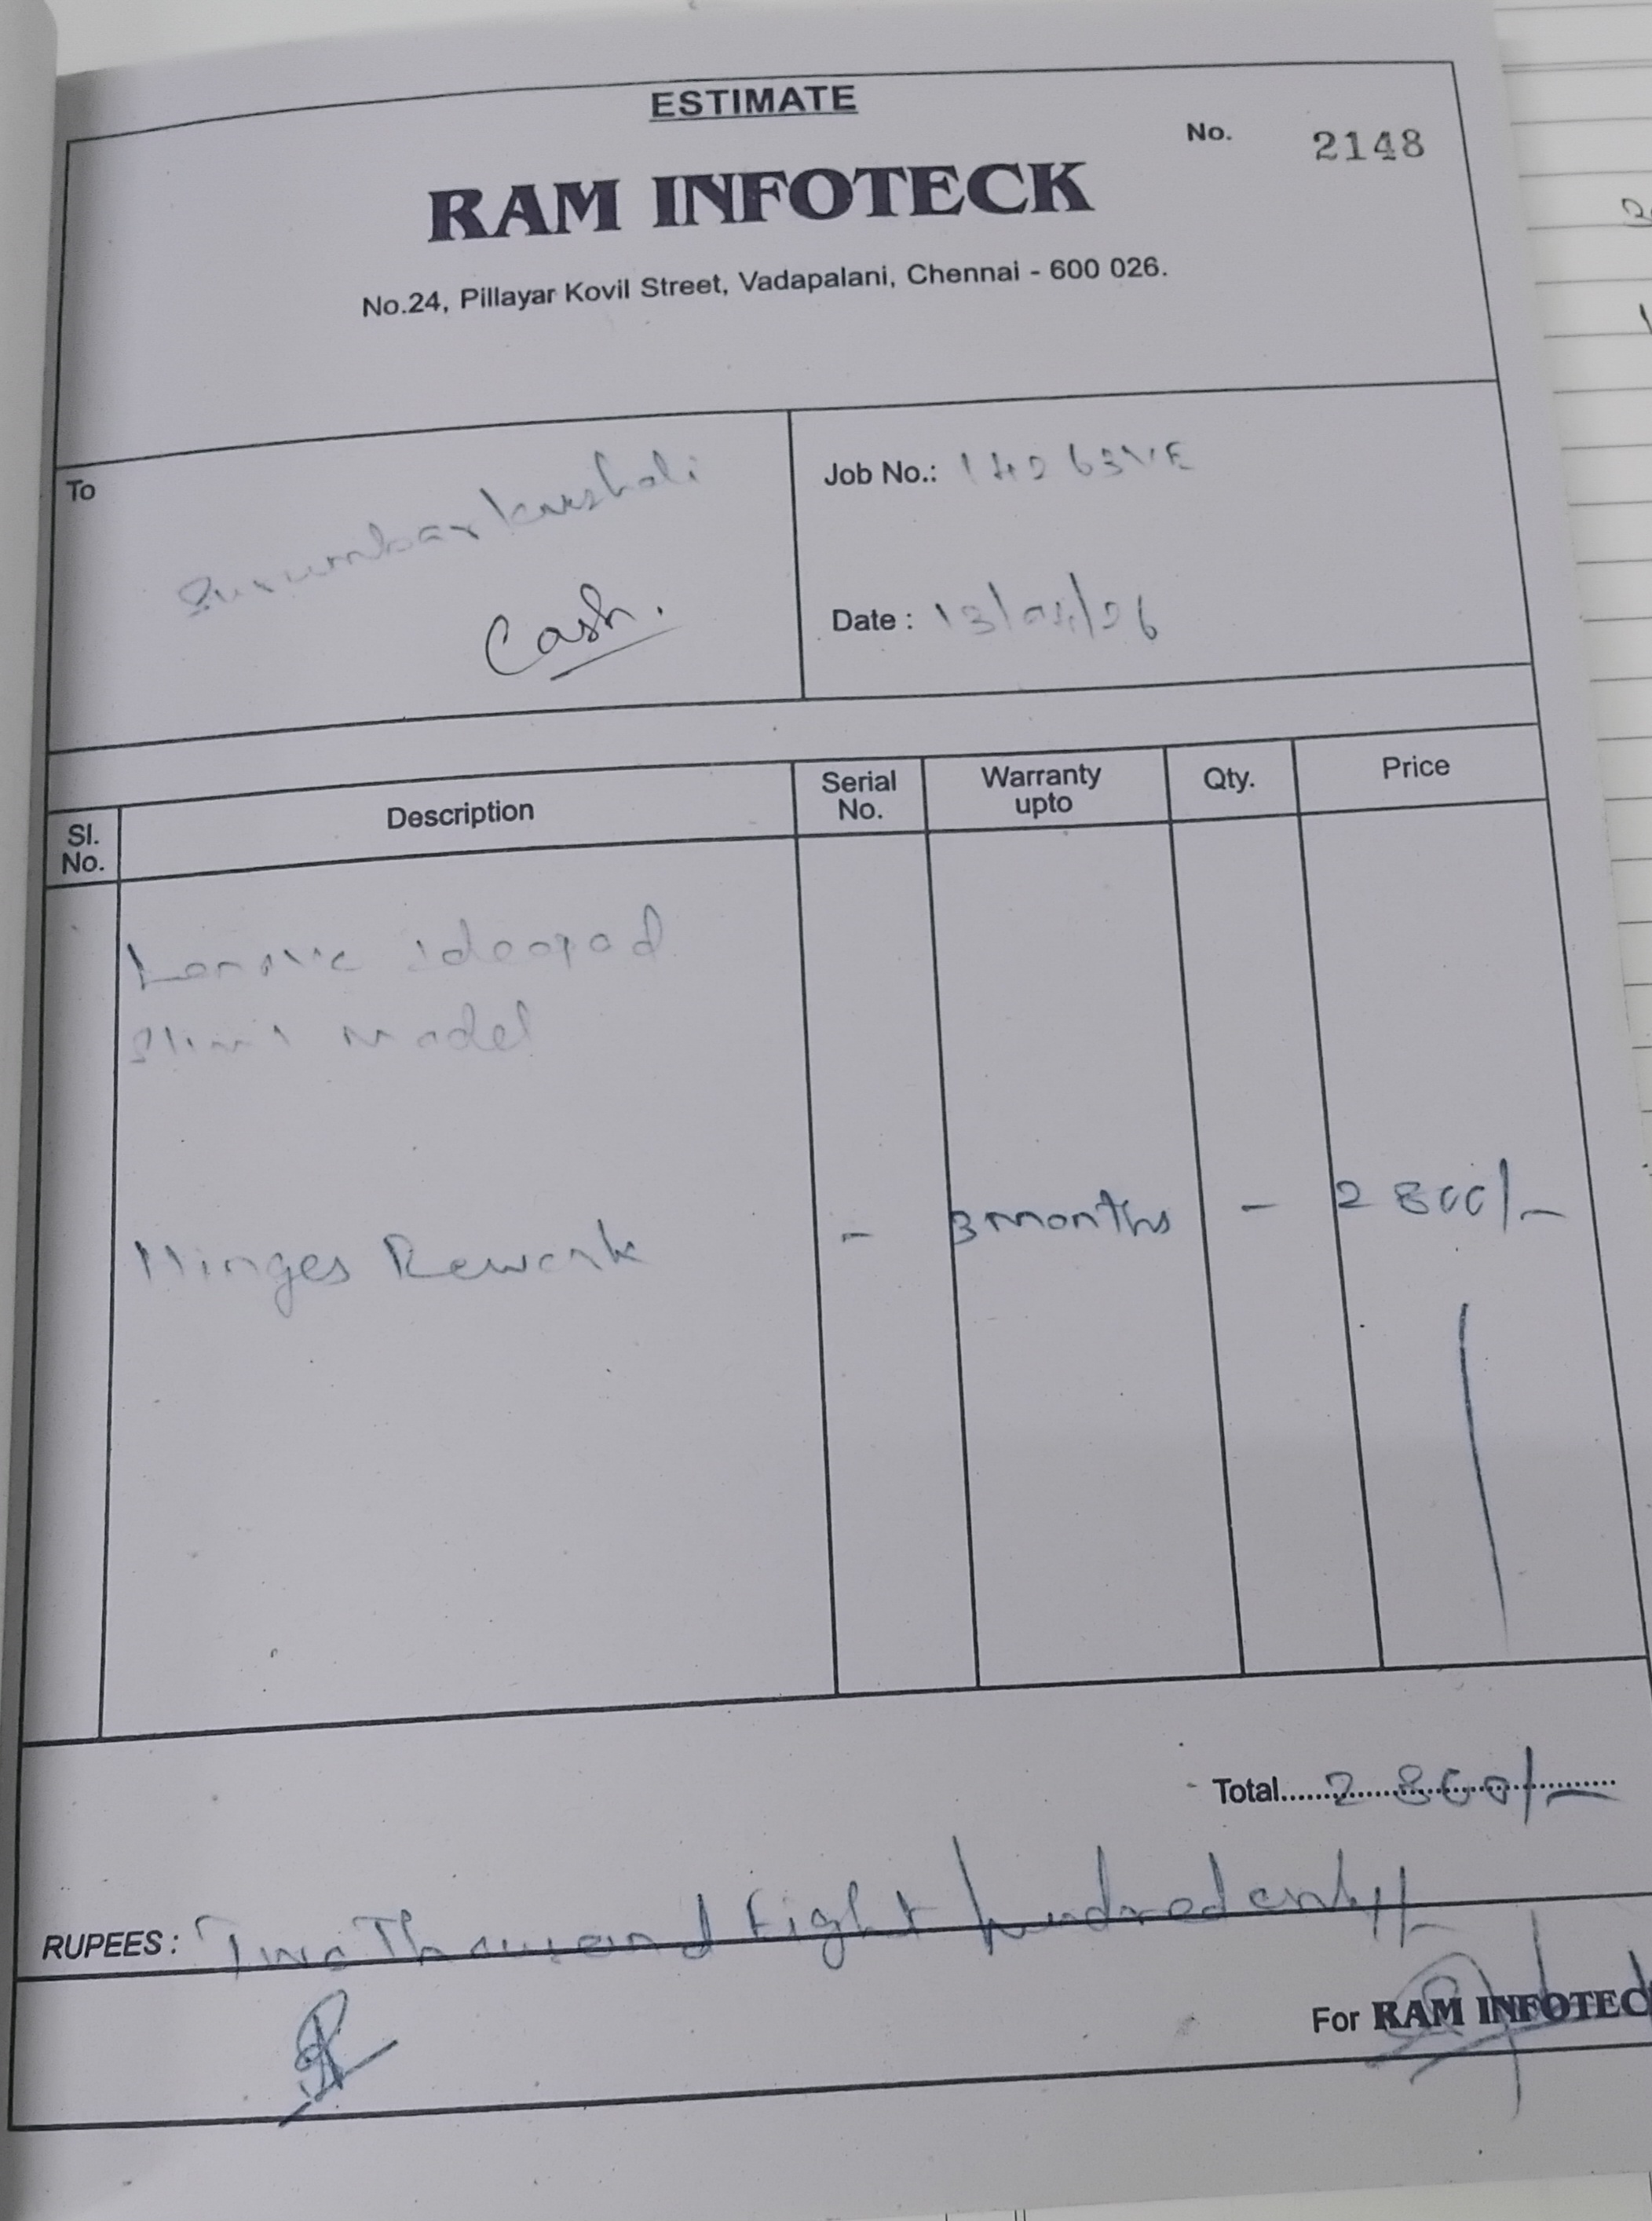 ESTIMATE
No. 2148
RAM INFOTECK
No.24, Pillayar Kovil Street, Vadapalani, Chennai - 600 026.
To
Cash.
Job No.:
Date : 13/04/26
Sl. No. Description Serial No. Warranty upto Qty. Price
Lenovo ideapad
Slim 1 model
Hinges Rework - 3 months - 2800/-
Total......2800/-
RUPEES : Two Thousand Eight hundred only/-
For RAM INFOTEC